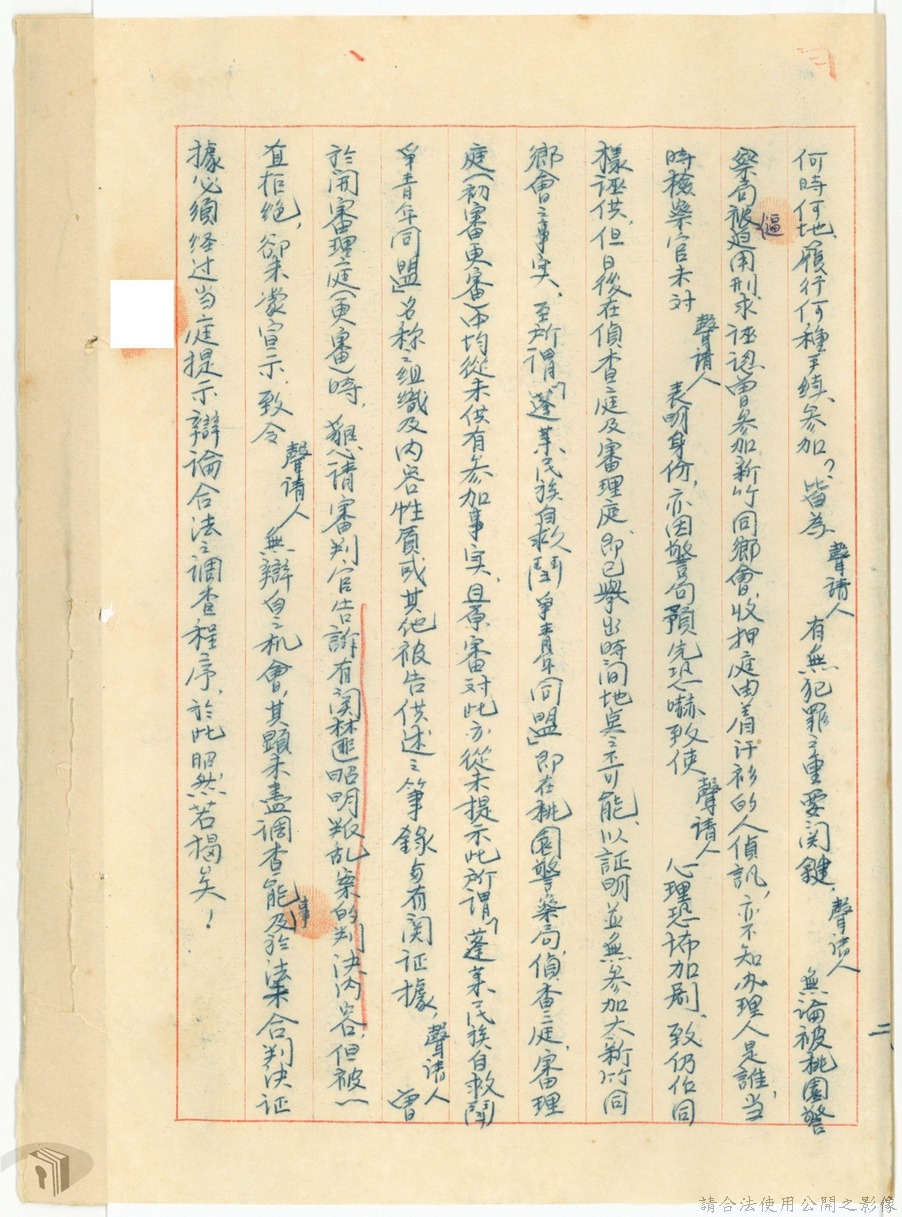 何時何地、履行何種手续、参加?、皆為聲請人有無犯罪之重要関鍵,聲请人無論被桃園警
察局被逼迫用刑求誣認曾参加新竹同鄉會,收押庭由着汗衫的人偵訊,亦不知办理人是誰,当
時檢察官未对聲請人表明身份,亦因警局預先恐嚇致使聲請人心理恐怖加劇、致仍作同
樣誣供,但日後在偵查庭及審理庭、即已舉出時间地点之不可能、以証明並無参加大新竹同
鄉會之事实、至所谓「蓬莱民族自救鬥爭青年同盟」即在桃園警察局,偵查庭、審理
庭(初審更審)中均從未供有参加事实、且原審对此亦從未提示此所謂「蓬莱民族自救鬥
爭青年同盟」名称之组織及内容性質或其他被告供述之筆錄与有関证據,聲请人曾
於开審理庭(更審)時,懇请審判官告訴有関林匪昭明叛乱案的判决内容,但被一
直拒绝,卻未蒙宣示,致令聲請人無辯白之机會,其顯未盡調查能事及於法未合判决证
據必須经过当庭提示辯論合法之调查程序,於此昭然若揭矣!
二、
請合法使用公開之影像